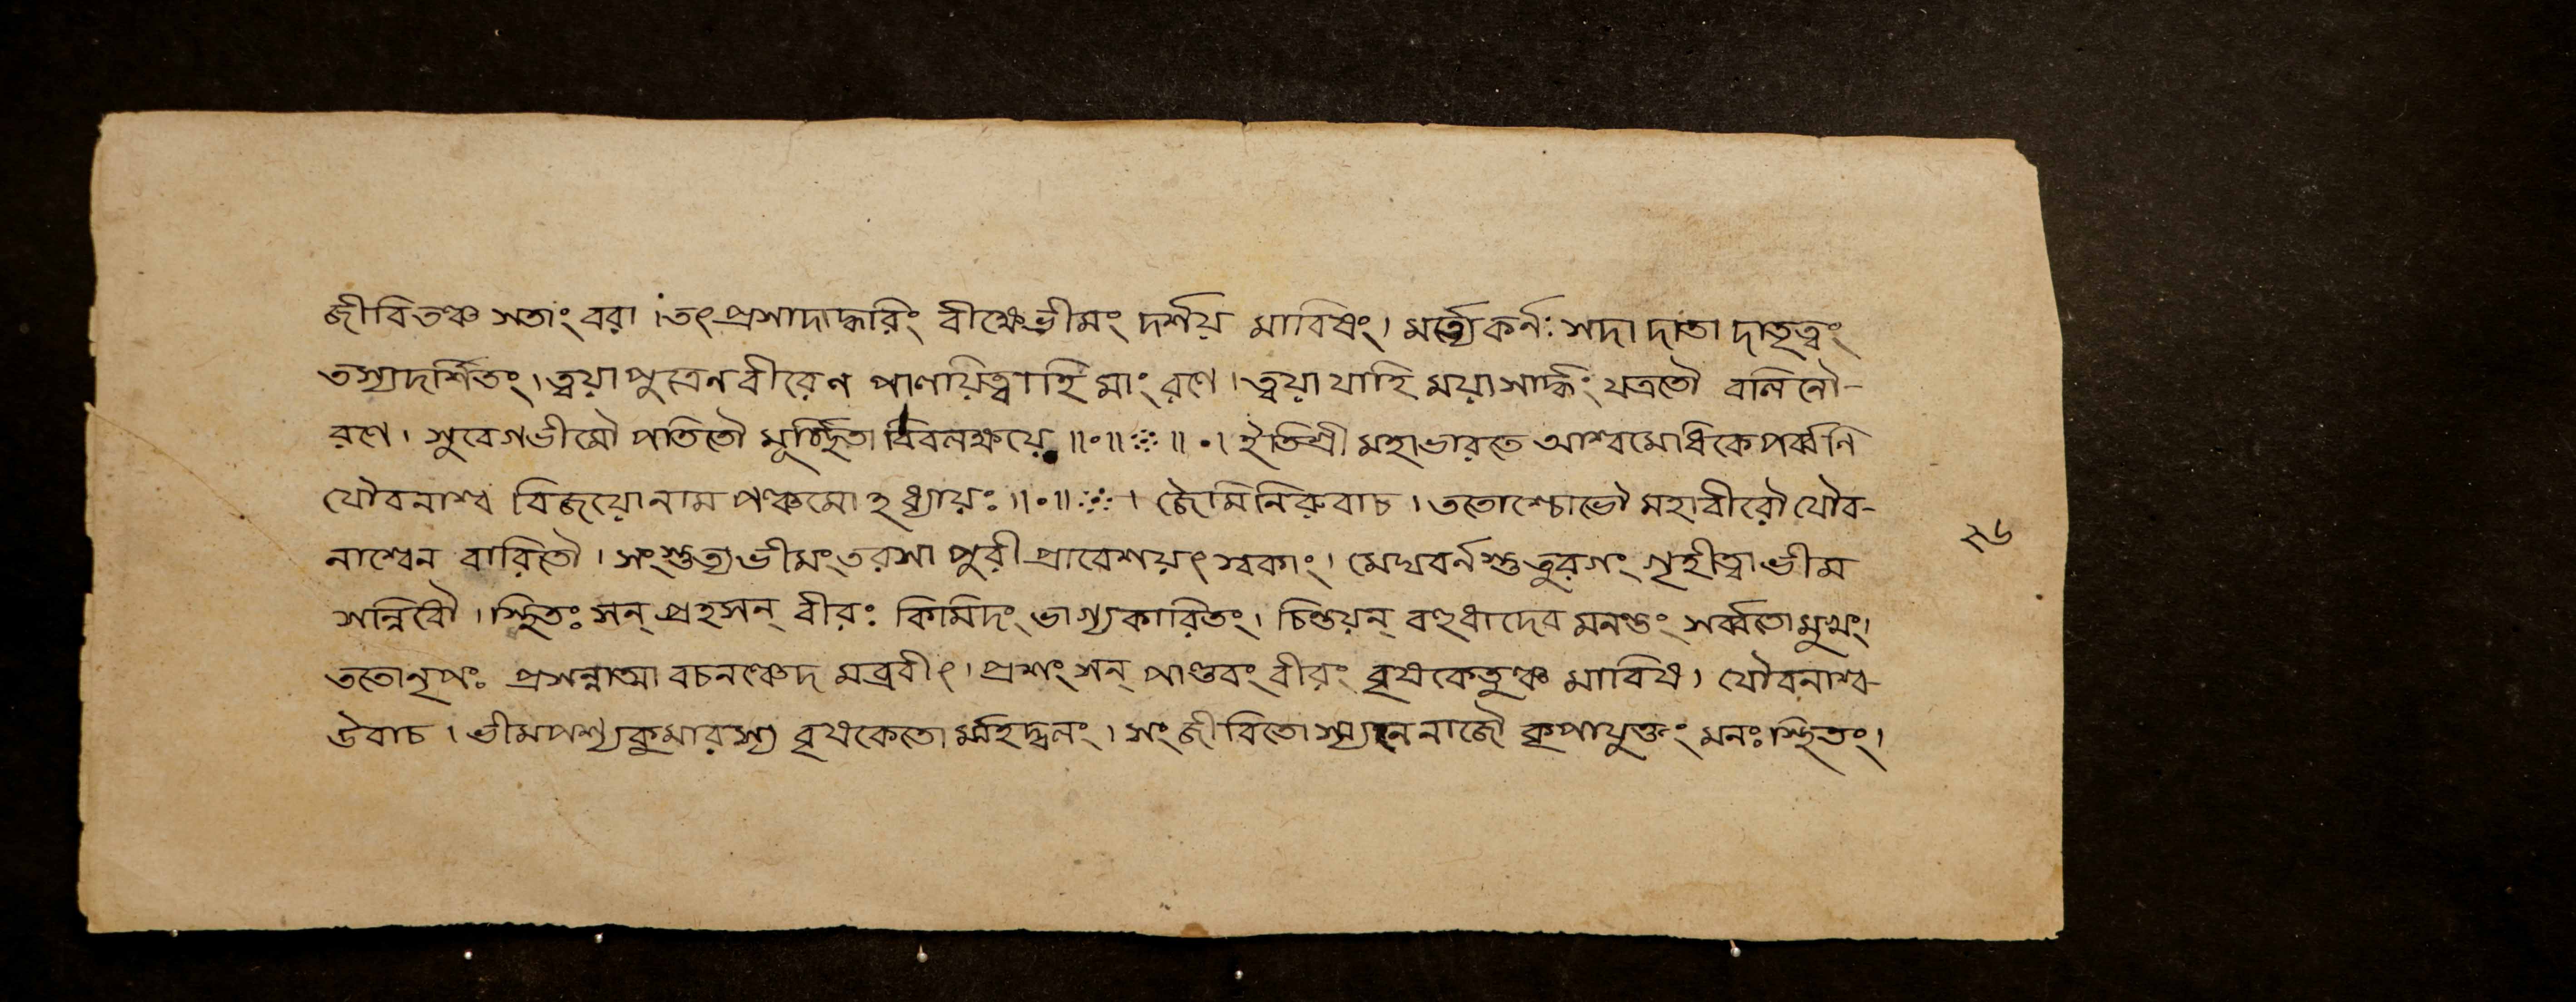 জীবিতঞ্চ সতাং বরা । তৎপ্রসাদাদ্ধরিং বীক্ষে ভীমং দর্শয় মাবিষং। মর্ত্ত্যেকর্নঃ সদা দাতা দাতৃত্বং
তস্যদর্শিতং। ত্বয়া পুত্রেন বীরেন পাণয়িত্বাহি মাং রণে। ত্বয়া যাহি ময়া সার্দ্ধং যত্রতৌ বলিনৌ-
রণে। সুবেগভীমৌ পতিতৌ মূর্চ্ছিতা বিবলক্ষয়ে ॥৹॥ ॥৹। ইতিশ্রী মহাভারতে আশ্বমেধিকে পর্ব্বনি
যৌবনাশ্ব বিজয়োনাম পঞ্চমোঽধ্যায়ঃ ॥৹॥ । জৈমিনিরুবাচ। ততোশ্চোভৌ মহাবীরৌ যৌব-
নাশ্বেন বারিতৌ। সংস্তুত্য ভীমং তরসা পুরী প্রাবেশয়ৎ স্বকাং। মেঘবর্নস্তু তুরগং গৃহীত্বা ভীম
সন্নিধৌ। স্থিতঃ সন্ প্রহসন্ বীরঃ কিমিদং ভাগ্যকারিতং। চিন্তয়ন্ বহুধাদেব মনন্তং সর্ব্বতোমুখং।
ততোনৃপঃ প্রসন্নাত্মা বচনঞ্চেদ মব্রবীৎ। প্রশংসন্ পাণ্ডবং বীরং বৃষকেতুঞ্চ মাবিষ। যৌবনাশ্ব-
উবাচ। ভীমপশ্য কুমারস্য বৃষকেতো র্মহিদ্ধনং। সংজীবিতোস্ম্যনেনাজৌ কৃপাযুক্তং মনঃস্থিতং।
২৬